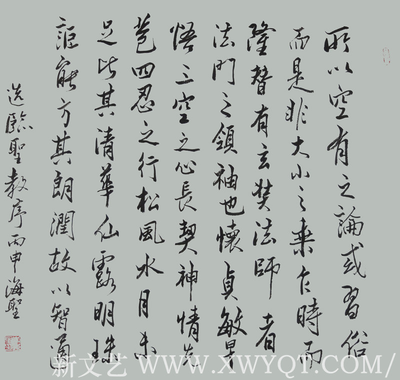 所以空有之論或習俗
而是非大小之乘乍時而
隆替有玄奘法師者
法門之領袖也懷貞敏早
悟三空之心長契神情先
苞四忍之行松風水月未
足比其清華仙露明珠
詎能方其朗潤故以智通
选臨聖教序丙申海聖
新文艺